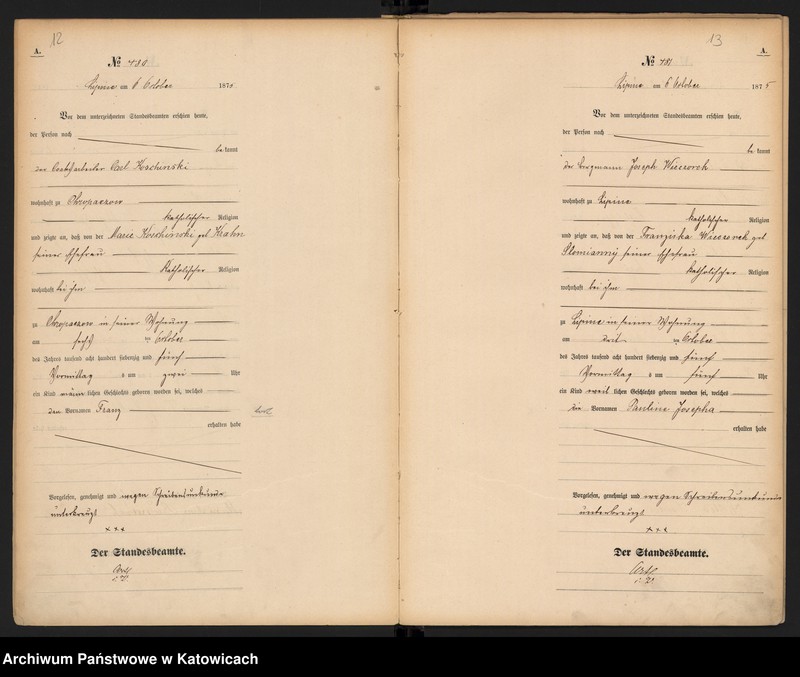 12
A.
№ 480.
Lipine am 6 October 1875
Vor dem unterzeichneten Standesbeamten erschien heute,
der Person nach
be kannt
der Carl Koschinski
wohnhaft zu
katholischer Religion
und zeigte an, daß von der Marie Koschinski geb Krahn
seiner Ehefrau
katholischer Religion
wohnhaft bei ihm
zu in seiner Wohnung
am October
des Jahres tausend acht hundert siebenzig und fünf
Vormittag s um zwei Uhr
ein Kind männ lichen Geschlechts geboren worden sei, welches
den Vornamen Franz
erhalten habe
Vorgelesen, genehmigt und wegen Schreibensunkunde
unterkreuzt
+++
Der Standesbeamte.
i. V.
13
A.
№ 481
Lipine am 6 October 1875
Vor dem unterzeichneten Standesbeamten erschien heute,
der Person nach
be kannt
der Bergmann Joseph Wieczorek
wohnhaft zu Lipine
katholischer Religion
und zeigte an, daß von der Franziska Wieczorek geb
Slomianny seiner Ehefrau
katholischer Religion
wohnhaft bei ihm
zu Lipine in seiner Wohnung
am drei October
des Jahres tausend acht hundert siebenzig und fünf
Vormittag s um fünf Uhr
ein Kind weib lichen Geschlechts geboren worden sei, welches
die Vornamen Pauline Josepha
erhalten habe
Vorgelesen, genehmigt und wegen Schreibensunkunde
unterkreuzt
+++
Der Standesbeamte.
i. V.
Archiwum Państwowe w Katowicach